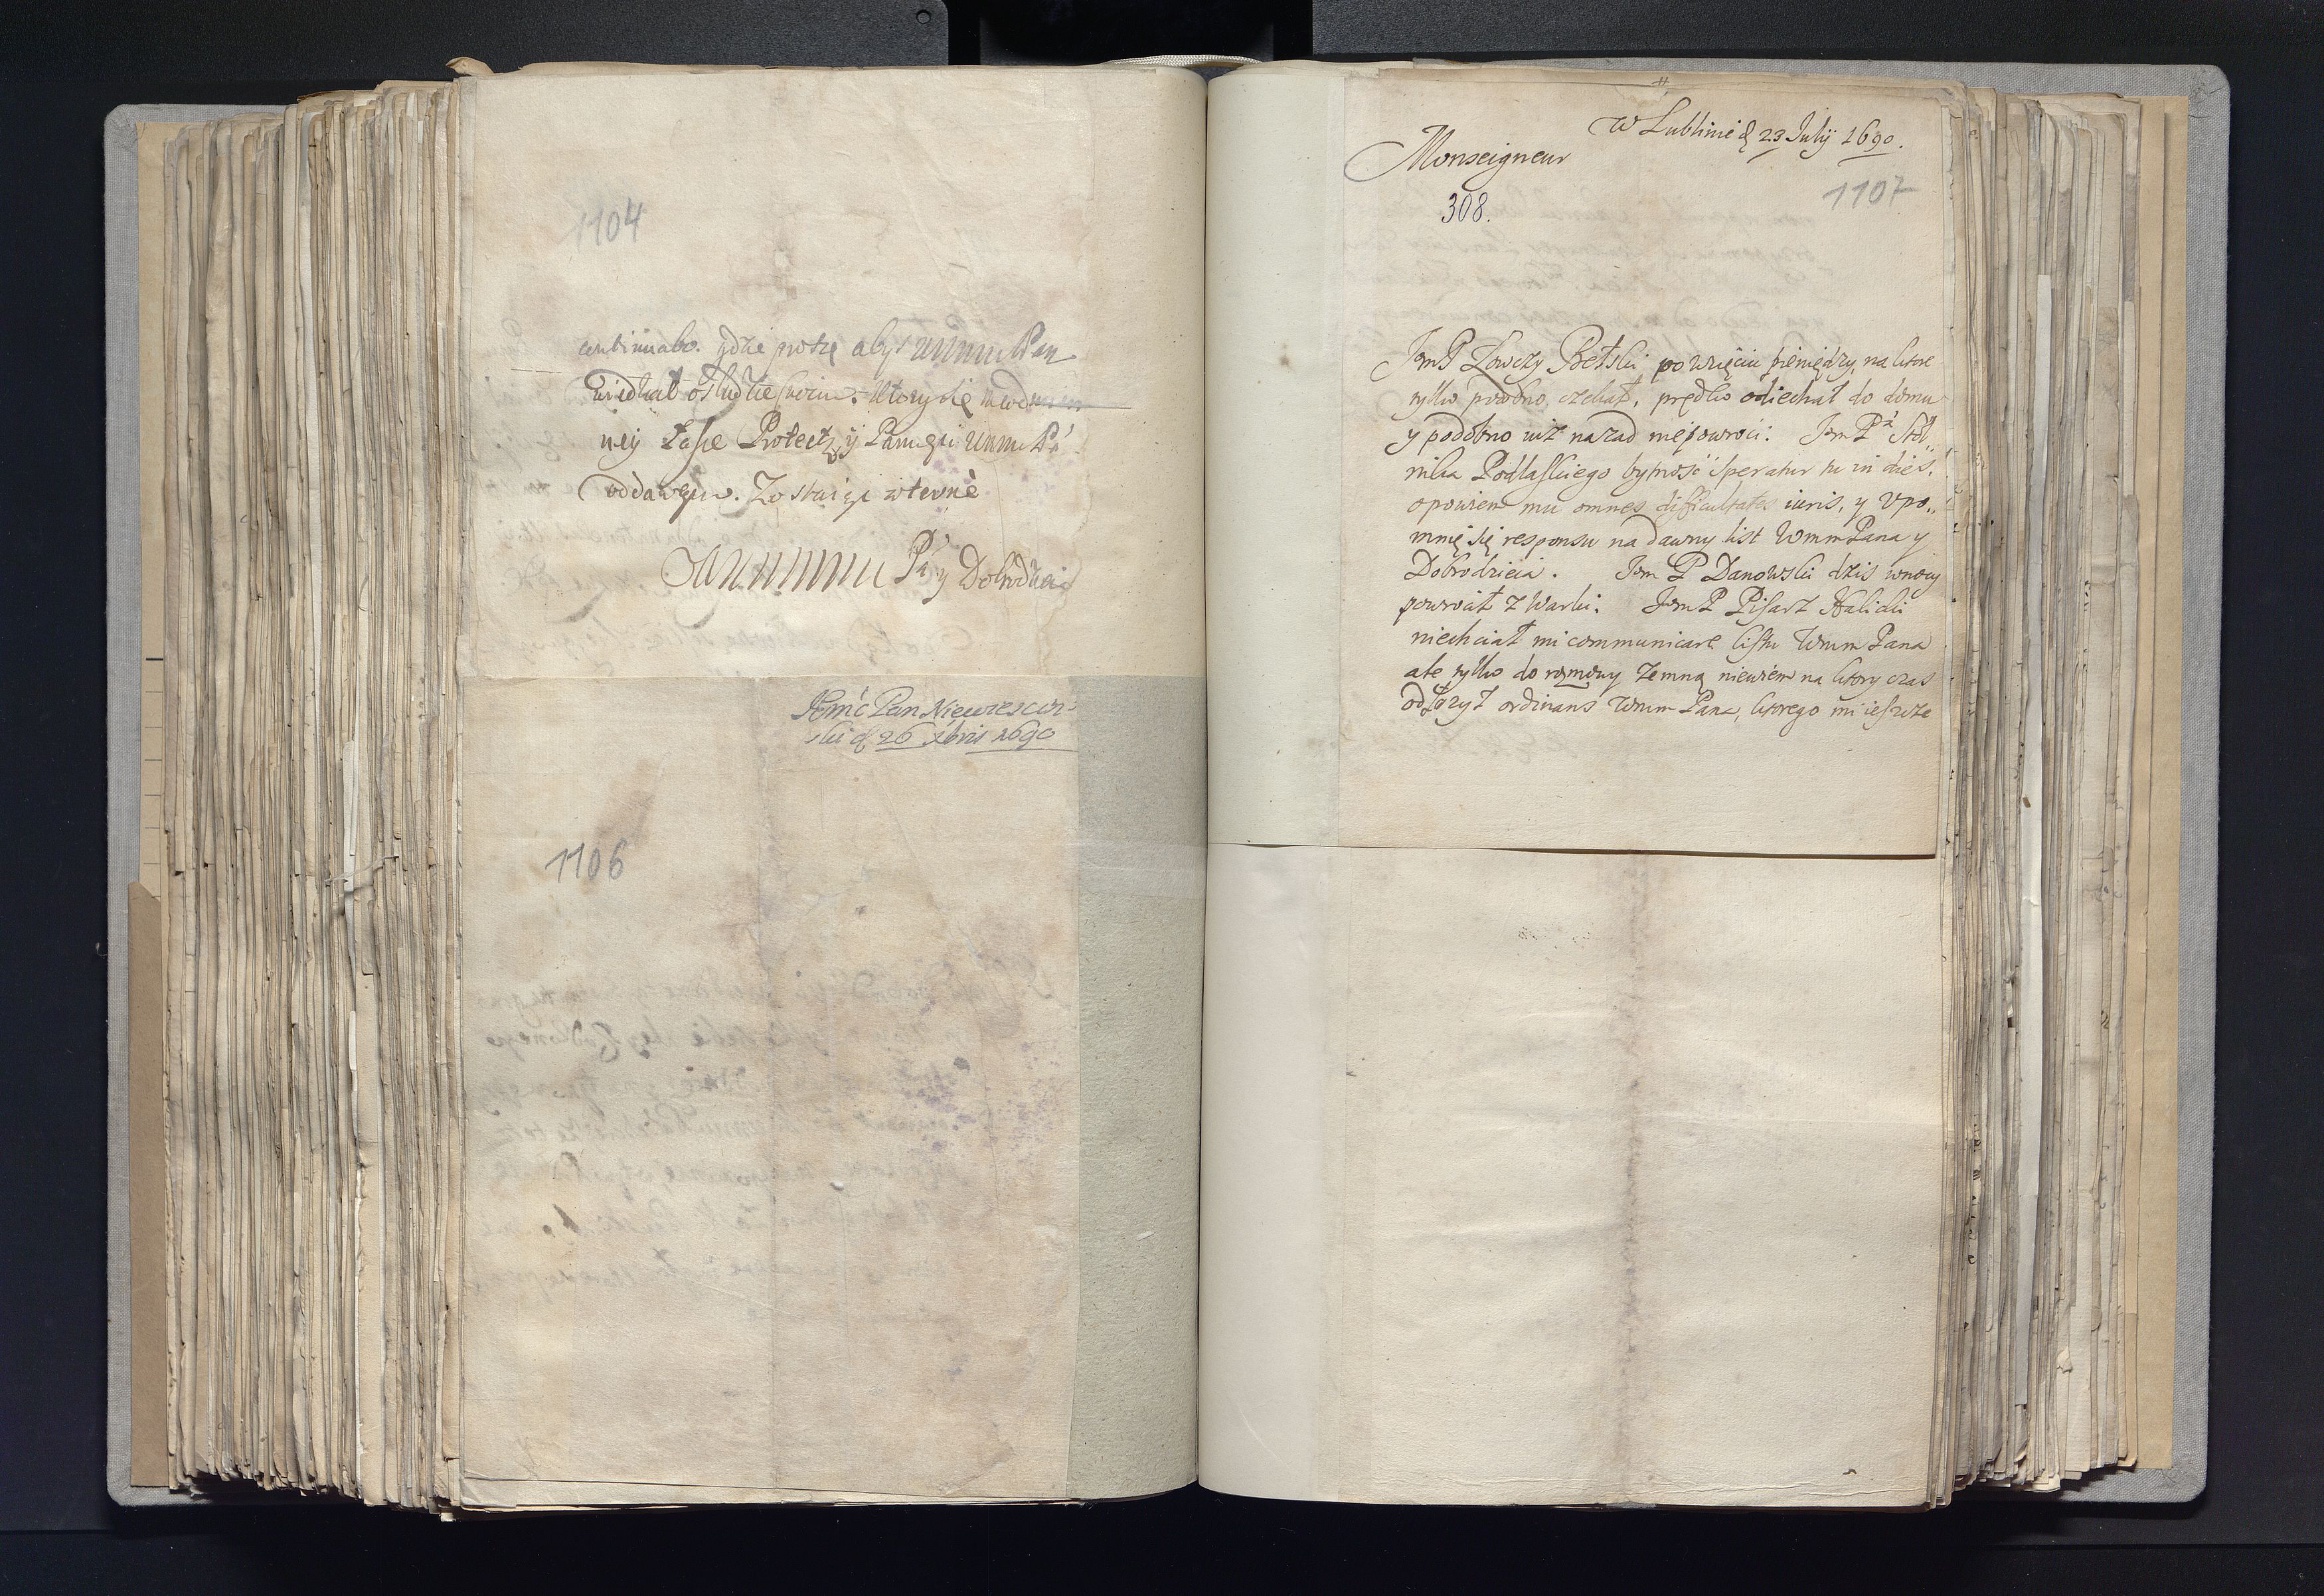 1104
gdzie proszę abyś WMMM Pan
wiedział o słudze swoim. Który się
ney Łasce Protectyi y Pamięci WMMM Pa
oddawszy. Zostaię
WMMMM Pa y Dobrodzieia
Jemć Pan Niewiescin:
ski d 26 Xbris 1690
1106
w Lublinie d 23 Julij 1690.
Monseigneur
1107
308.
Jem P Łowczy Bełski po wzięciu pieniędzy, na ktore
tylko podobno czekał, prędko odiechał do domu
y podobno iuż nazad niepowroci. Jem Pa Stol„
nika Podlaskiego bytność speratur tu in dies.
opowiem mu omnes difficultates iuris, y Upo„
mnię się responsu na dawny list WMM Pana y
Dobrodzieia. Jem P Danowski dzis wnocy
powrocił z Warki. Jem P Pisarz Halicki
niechciał mi communicare listu WMM Pana
ale tylko do rozmowy zemną niewiem na ktory czas
odłożył ordinans WMM Pana, ktorego mi ieszcze